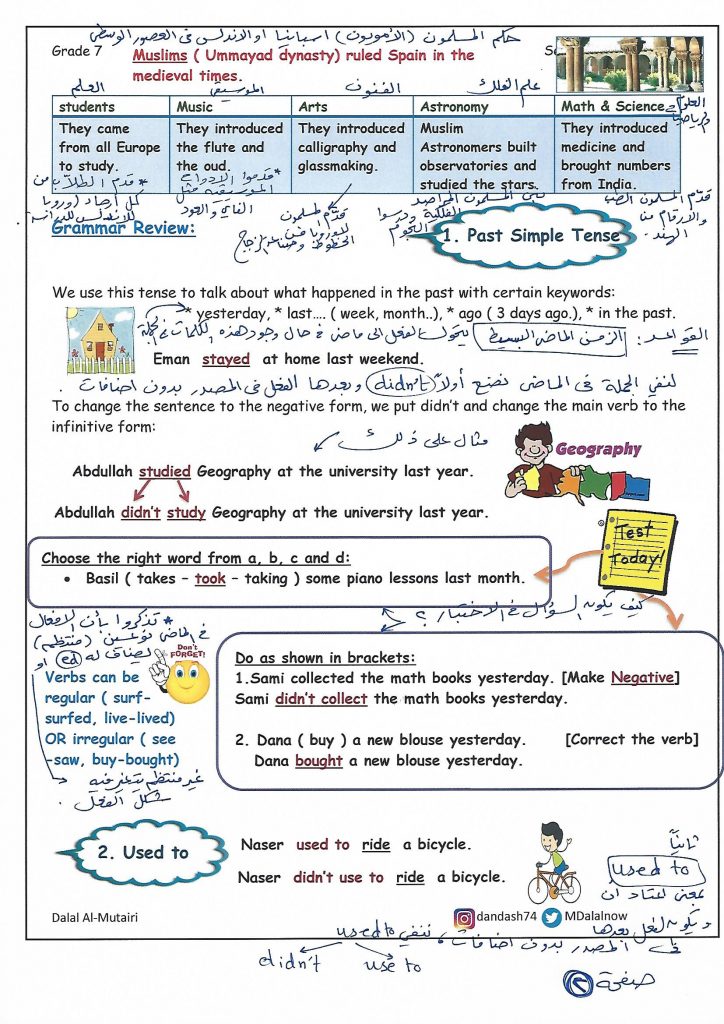 حكم المسلمون (الأمويون) اسبانيا او الاندلس في العصور الوسطى
Grade 7
Muslims ( Ummayad dynasty) ruled Spain in the
medieval times.
العلم
الموسيقى
الفنون
علم الفلك
العلوم
students Music Arts Astronomy Math & Science
They came from all Europe to study.
They introduced the flute and the oud.
They introduced calligraphy and glassmaking.
Muslim Astronomers built observatories and studied the stars.
They introduced medicine and brought numbers from India.
* قدم الطلاب من
كل أرجاء اوروبا
* قدموا الادوات
الموسيقية مثل
الناي والعود
قدم المسلمون
بنى المسلمون المراصد
الفلكية ودرسوا
النجوم
قدم المسلمون الطب
والارقام من
الهند.
Grammar Review:
1. Past Simple Tense
We use this tense to talk about what happened in the past with certain keywords:
* yesterday, * last.... ( week, month..), * ago ( 3 days ago.), * in the past.
القواعد: الزمن الماضي البسيط يتحول الفعل الى ماضي في حال وجود هذه الكلمات في الجملة
Eman stayed at home last weekend.
لنفي الجملة في الماضي نضع أولاً didn't وبعدها الفعل في المصدر بدون اضافات.
To change the sentence to the negative form, we put didn't and change the main verb to the
infinitive form:
مثال على ذلك
Geography
Abdullah studied Geography at the university last year.
Abdullah didn't study Geography at the university last year.
Test
Today!
Choose the right word from a, b, c and d:
• Basil ( takes – took – taking ) some piano lessons last month.
كيف يكون السؤال في الاختبار؟
* تذكروا بأن الافعال
في الماضي نوعين (منتظم)
يضاف له ed او
Don't
FORGET!
Verbs can be
regular ( surf-
surfed, live-lived)
OR irregular ( see
-saw, buy-bought)
غير منتظم يتغير فيه
شكل الفعل.
Do as shown in brackets:
1.Sami collected the math books yesterday. [Make Negative]
Sami didn't collect the math books yesterday.
2. Dana ( buy ) a new blouse yesterday. [Correct the verb]
Dana bought a new blouse yesterday.
2. Used to
Naser used to ride a bicycle.
Naser didn't use to ride a bicycle.
ثانياً
used to
بمعنى اعتاد أن
ويكون الفعل بعدها
في المصدر بدون اضافات، ننفي used to
didn't use to
Dalal Al-Mutairi
dandash74 MDalalnow
صفحة 2